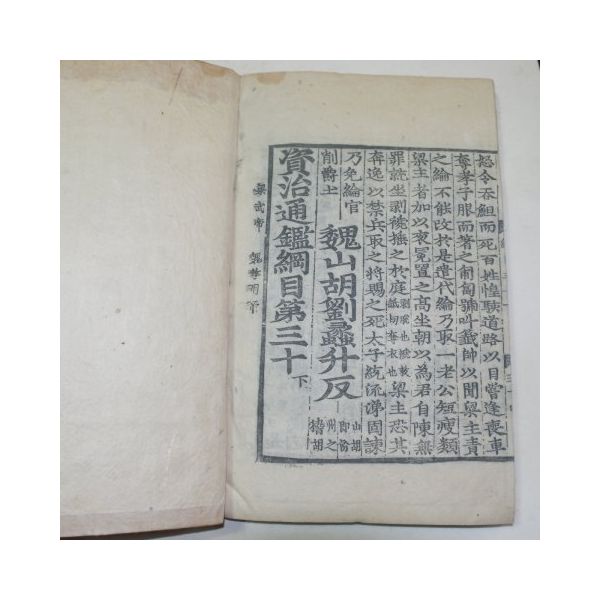 怒令吞䱇而死百姓惶駭道路以目嘗逢喪車
奪孝子服而著之匍匐號叫籤帥以聞梁主責
之綸不能改於是遣代綸乃取一老公短瘦類
梁主者加以衮冕置之高坐朝以爲君自陳無
罪就坐剥褫捶之於庭
梁主恐其
奔逸以禁兵取之將賜之死太子統流涕固諫
乃免綸官
削爵土
魏山胡劉蠡升反
山胡
即汾
州之
稽胡
資治通鑑綱目第三十下
梁武帝 魏孝明帝